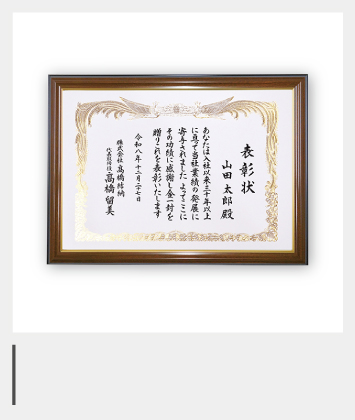 表彰状
山田 太郎 殿
あなたは入社以来三十年以上
に亘って当社業績の発展に
寄与されました よってここに
その功績に感謝し金一封を
贈りこれを表彰いたします
令和八年十二月二十七日
株式会社 高橋結納
代表取締役 高橋 留美